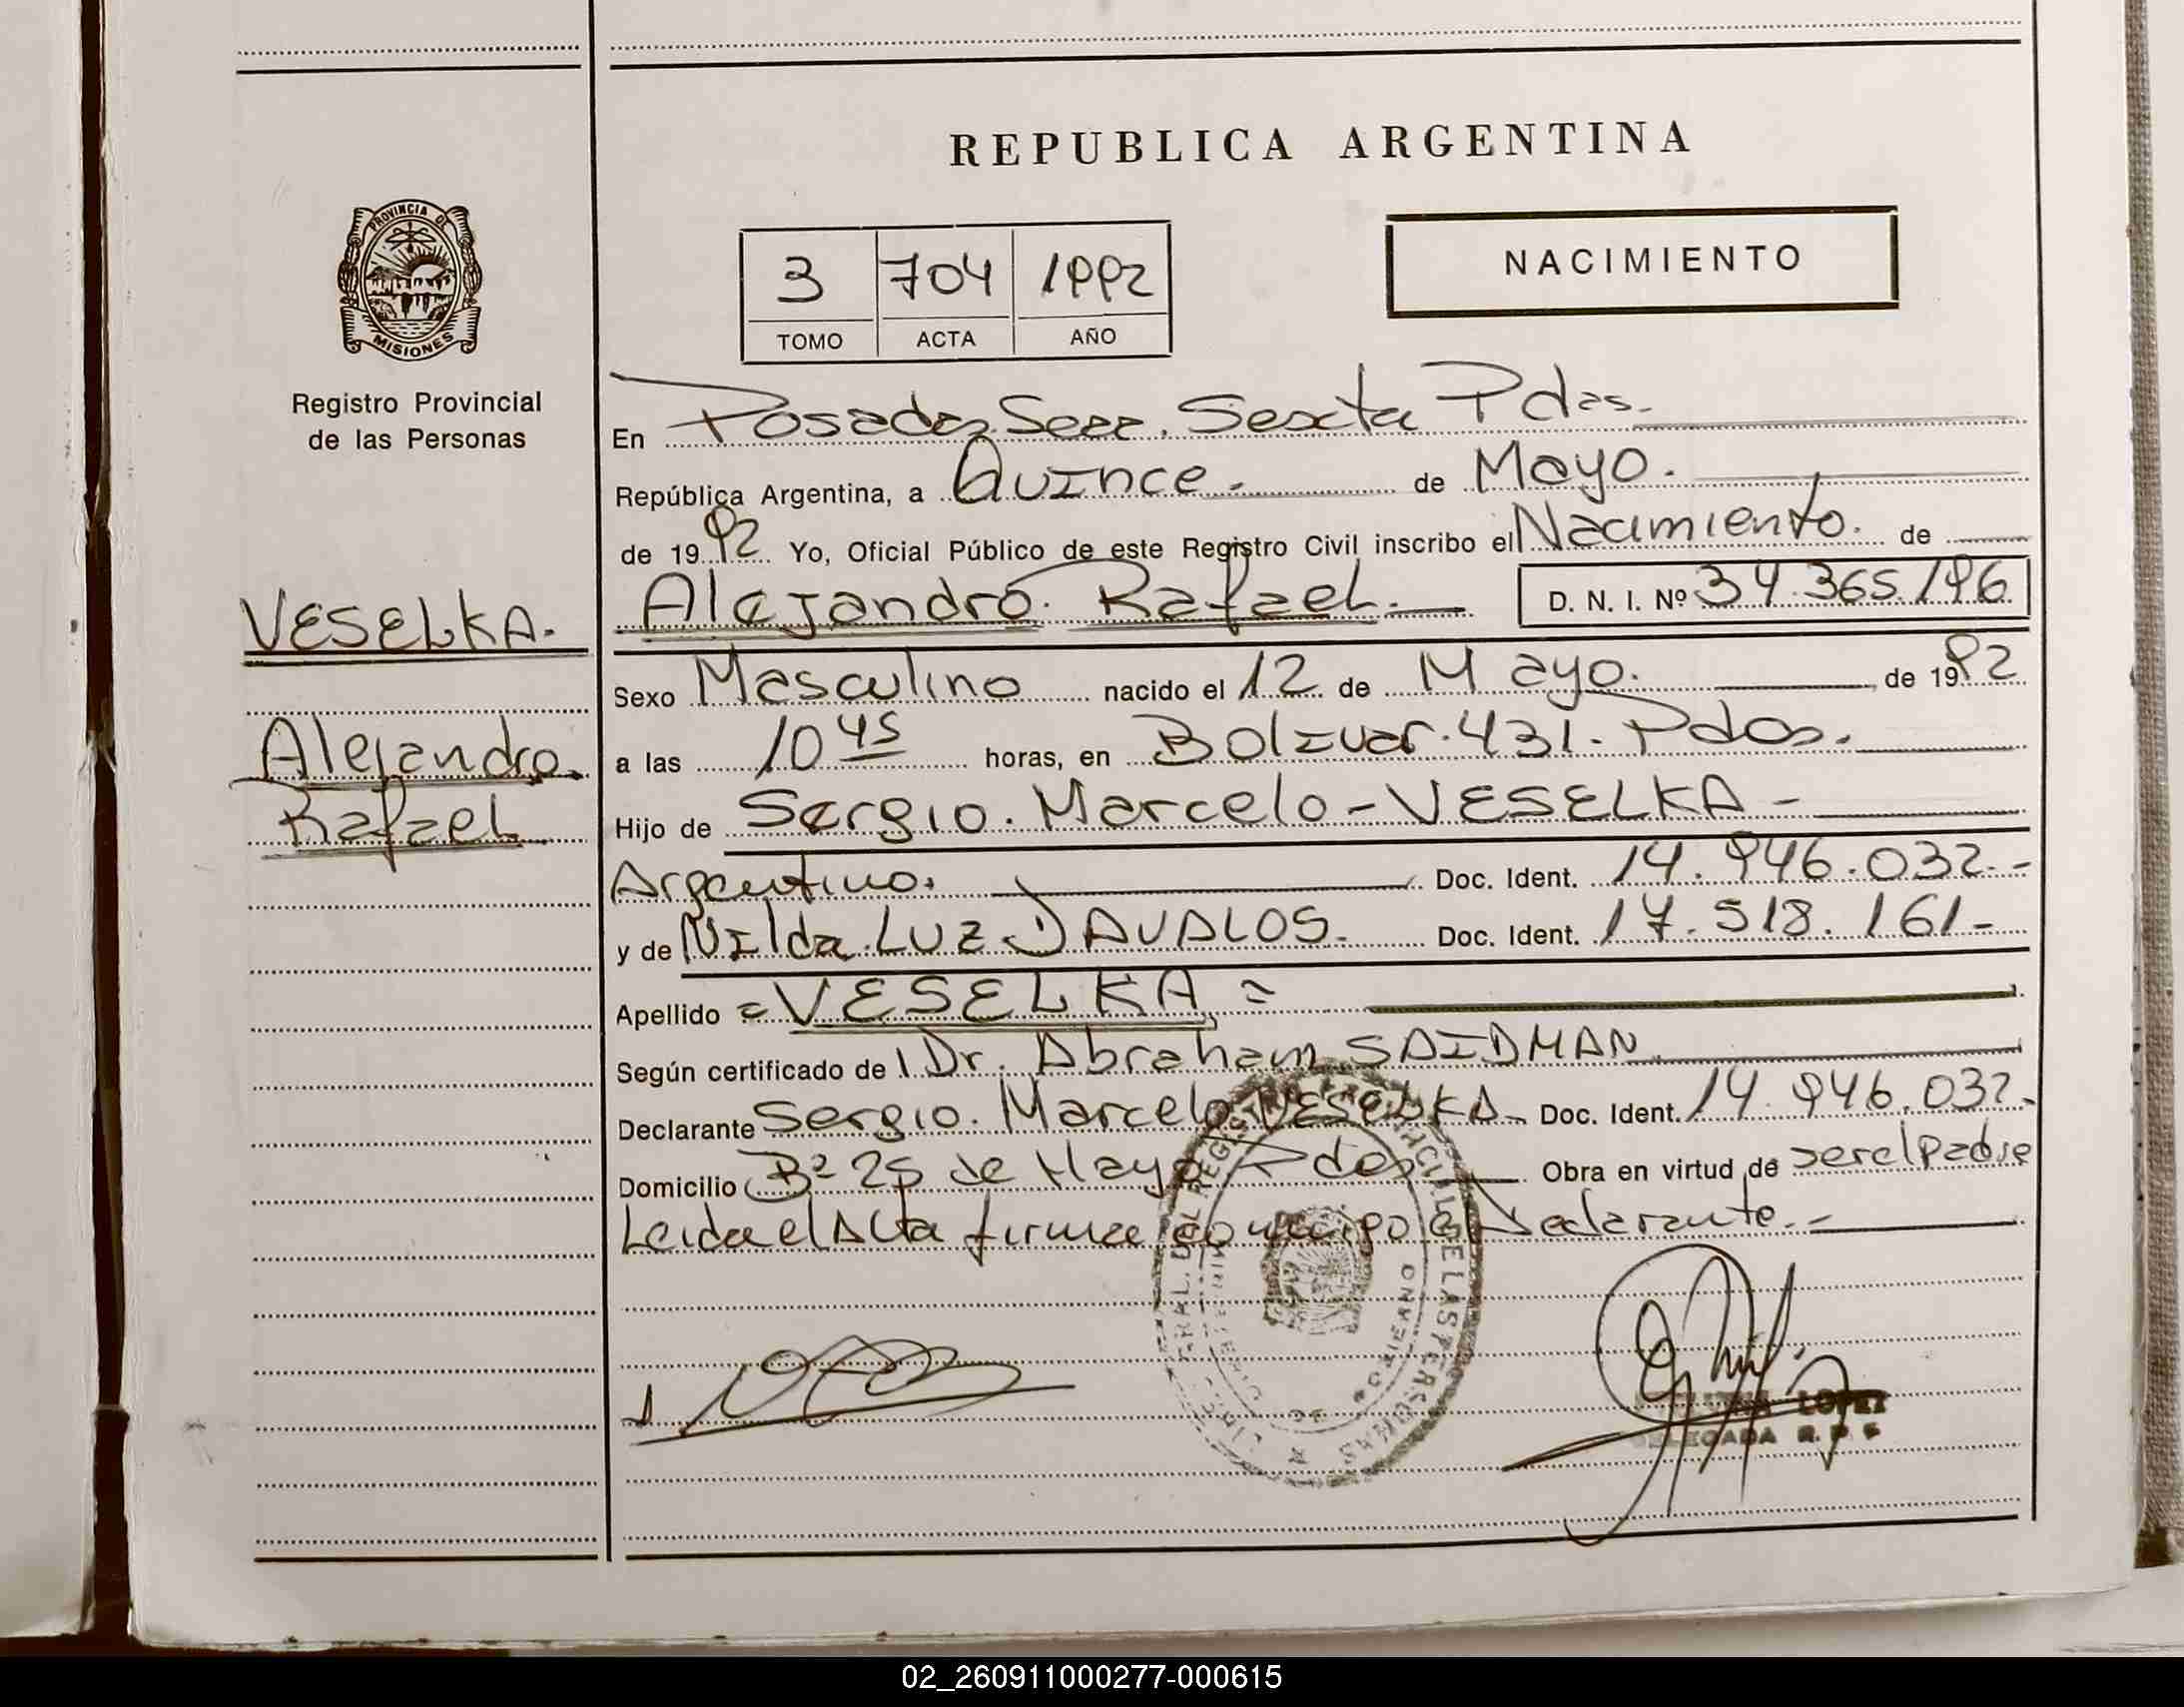 REPUBLICA ARGENTINA
PROVINCIA DE
MISIONES
Registro Provincial
de las Personas
VESELKA.
Alejandro
Rafael
NACIMIENTO
3 704 1992
TOMO ACTA AÑO
En Posadas Secc. Sexta Pdas.
República Argentina, a Quince. de Mayo.
de 1992 Yo, Oficial Público de este Registro Civil inscribo el Nacimiento. de
Alejandro. Rafael. D. N. I. Nº 34.365.196
Sexo Masculino nacido el 12 de Mayo. de 1992
a las 10 45 horas, en Bolívar. 431. Pdas.
Hijo de Sergio. Marcelo - VESELKA -
Argentino. Doc. Ident. 14.946.032.-
y de Nilda LUZ DAVALOS. Doc. Ident. 17.518.161-
Apellido = VESELKA =
Según certificado del Dr. Abraham SAIDMAN
Declarante Sergio. Marcelo VESELKA - Doc. Ident. 14.946.032.-
Domicilio Bº 25 de Mayo Pdas Obra en virtud de ser el padre
Leida el Acta firma conmigo el Declarante.-
LOPEZ
DELEGADA R. P. P.
02_260911000277-000615